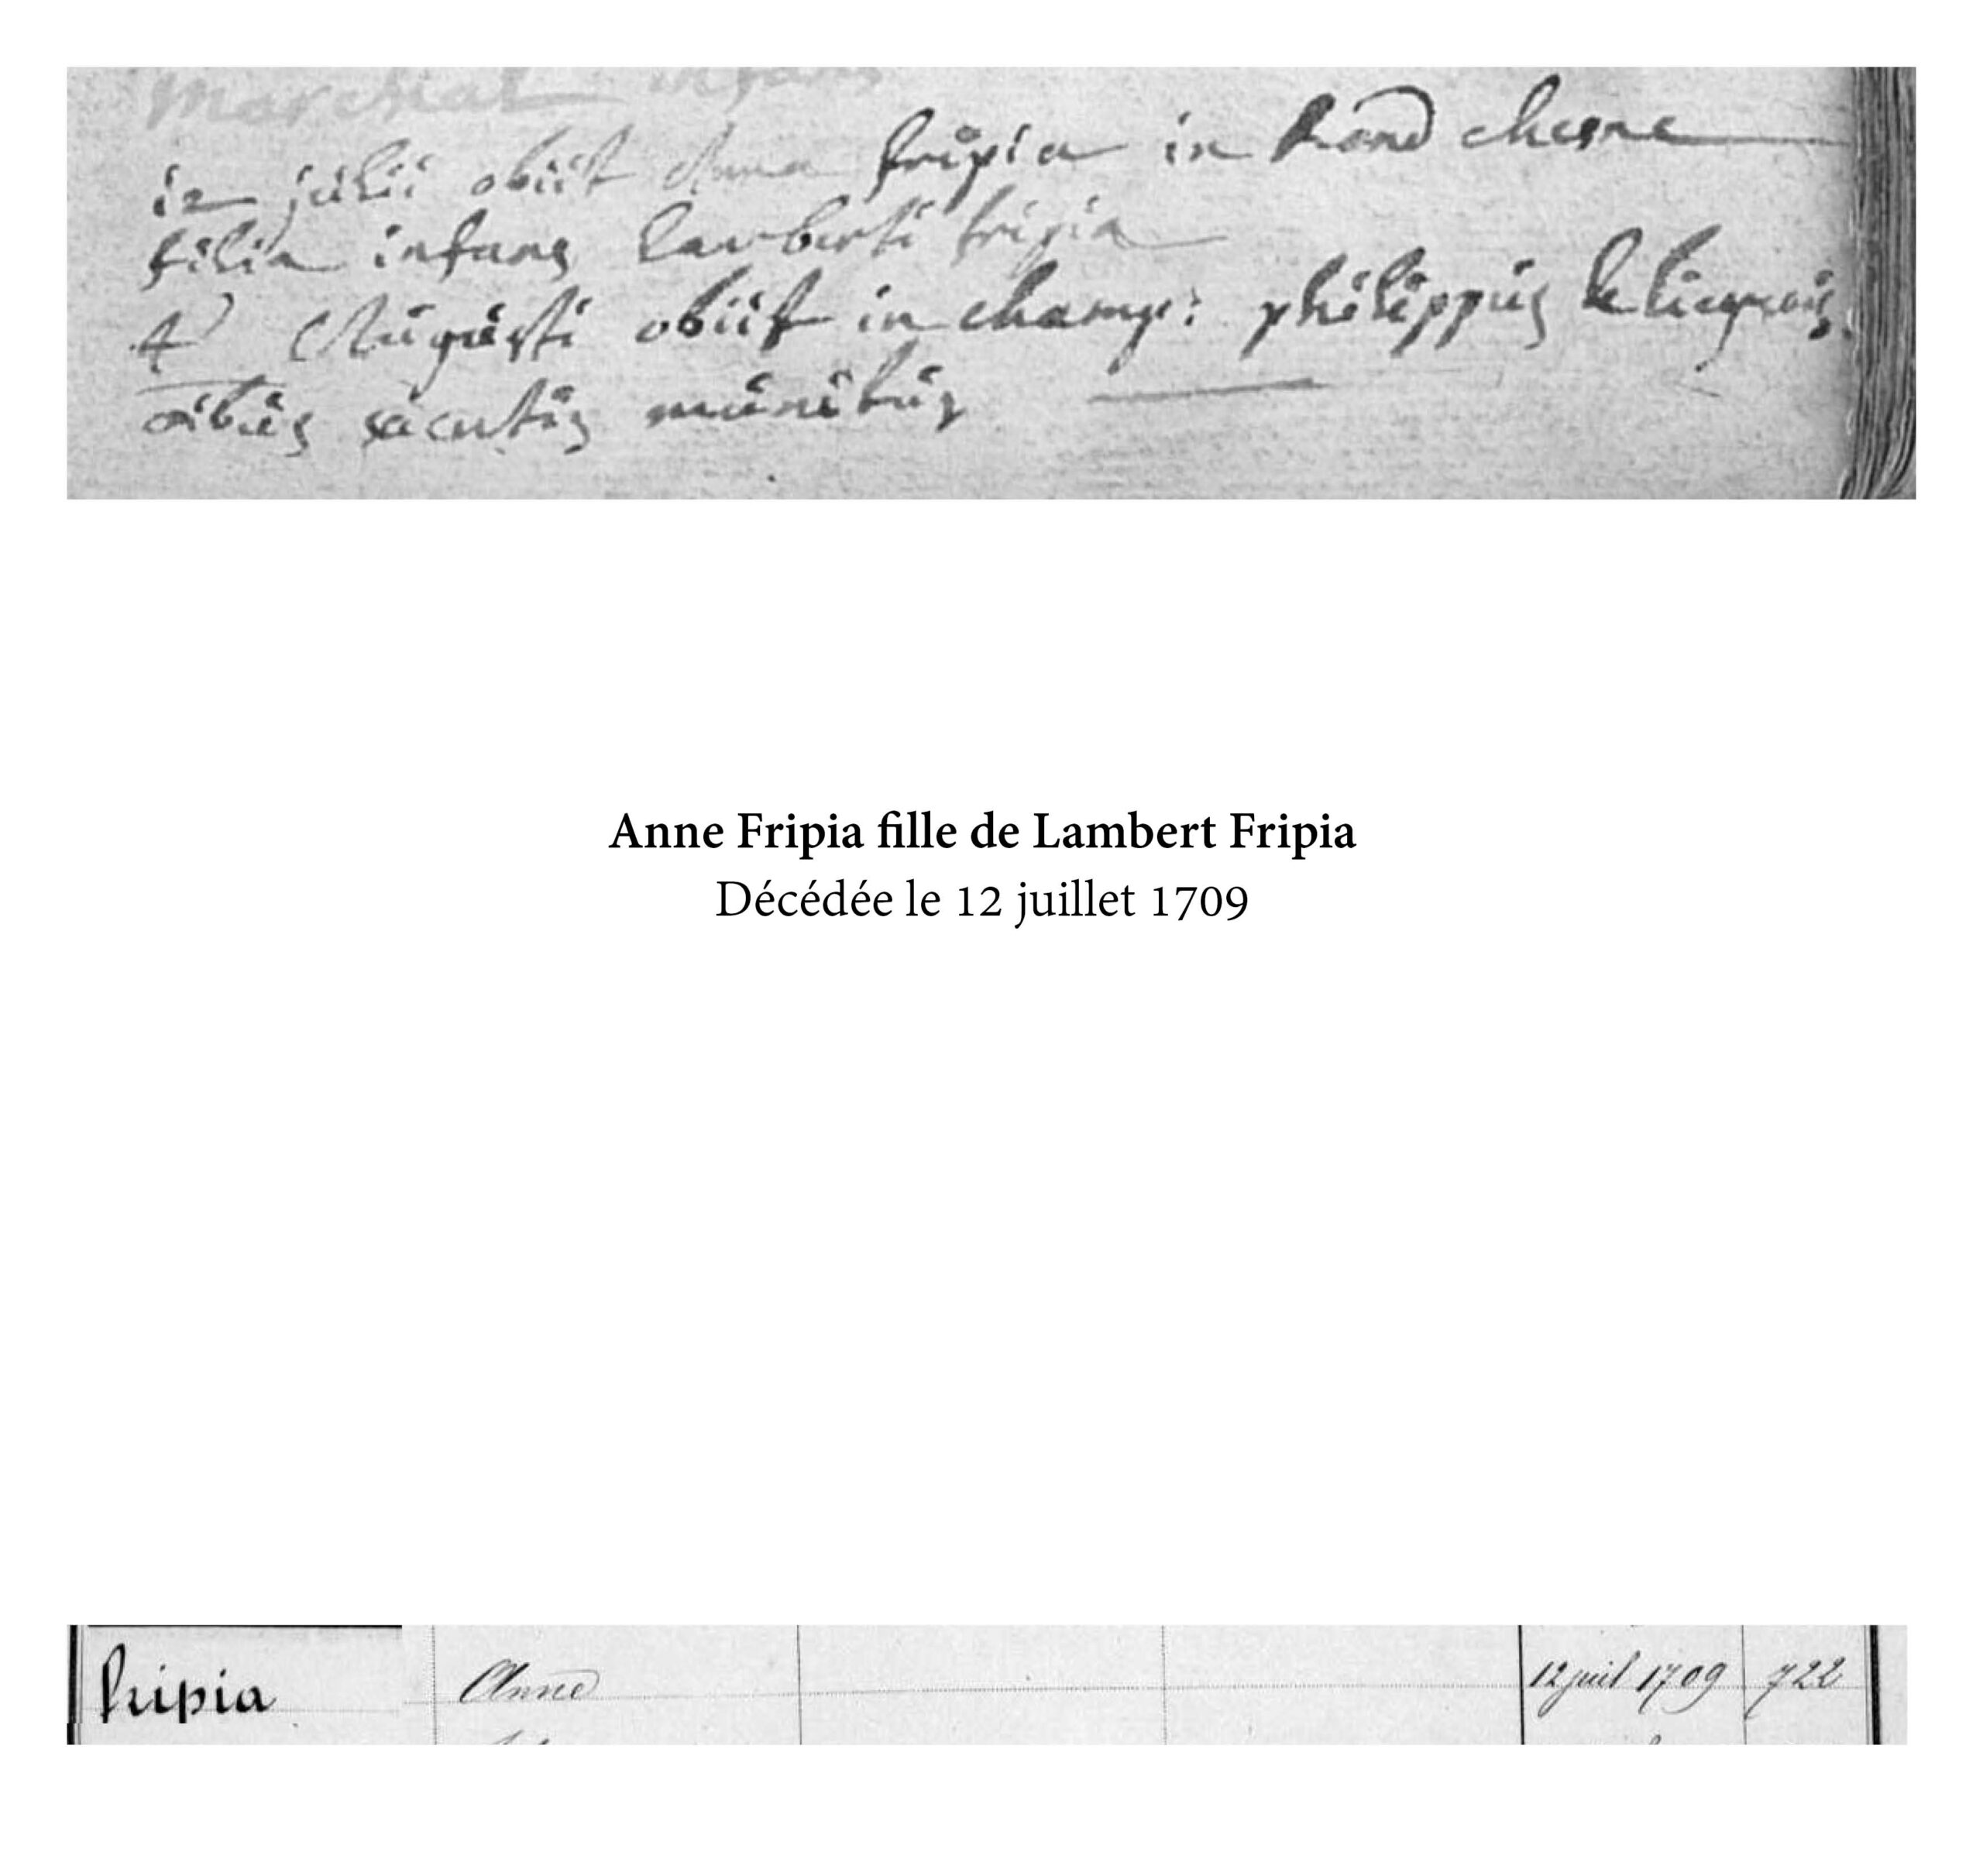 Marchal infans
i2 julii obiit Anna fripia in Rond chesne
filia infans lamberti fripia
4 Augusti obiit in champ: philippus le liegeois
oibus sacrtis munitus
Anne Fripia fille de Lambert Fripia
Décédée le 12 juillet 1709
fripia Anne 12 juil 1709 722